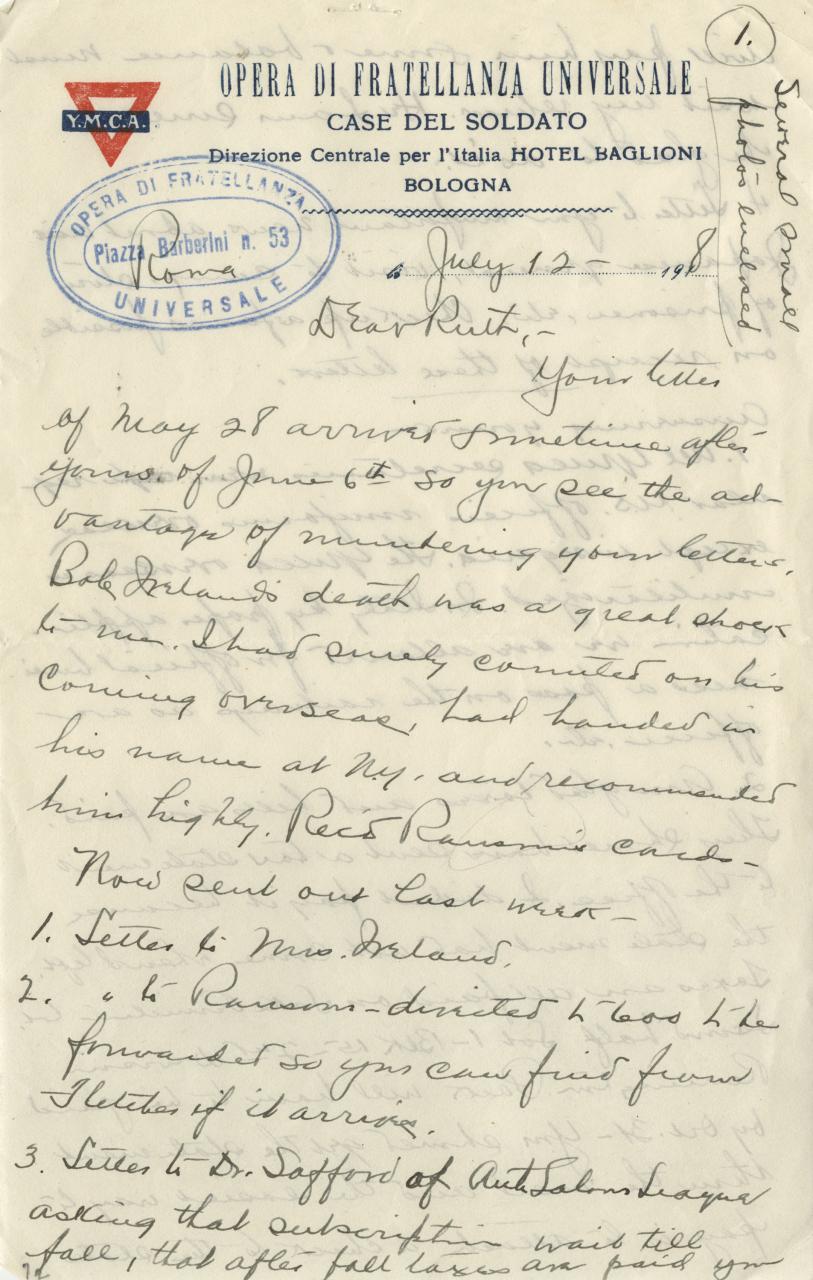 1.
Several small
photos enclosed
OPERA DI FRATELLANZA UNIVERSALE
Y.M.C.A.
CASE DEL SOLDATO
Direzione Centrale per l'Italia HOTEL BAGLIONI
BOLOGNA
OPERA DI FRATELLANZA
Piazza Barberini n. 53
Roma
UNIVERSALE
July 12 - 1918
Dear Ruth,-
Your letter
of May 28 arrived sometime after
yours of June 6th so you see the ad-
vantage of numbering your letters.
Bob Ireland's death was a great shock
to me. I had surely counted on his
coming overseas, had handed in
his name at N.Y. and recommended
him highly. Rec'd Ransom's cards-
Now sent out last week-
1. Letter to Mrs. Ireland.
2. " to Ransom-directed to 600 to be
forwarded so you can find from
Fletcher if it arrives.
3. Letter to Dr. Safford of Anti Saloon League
asking that subscription wait till
fall, that after fall taxes are paid you